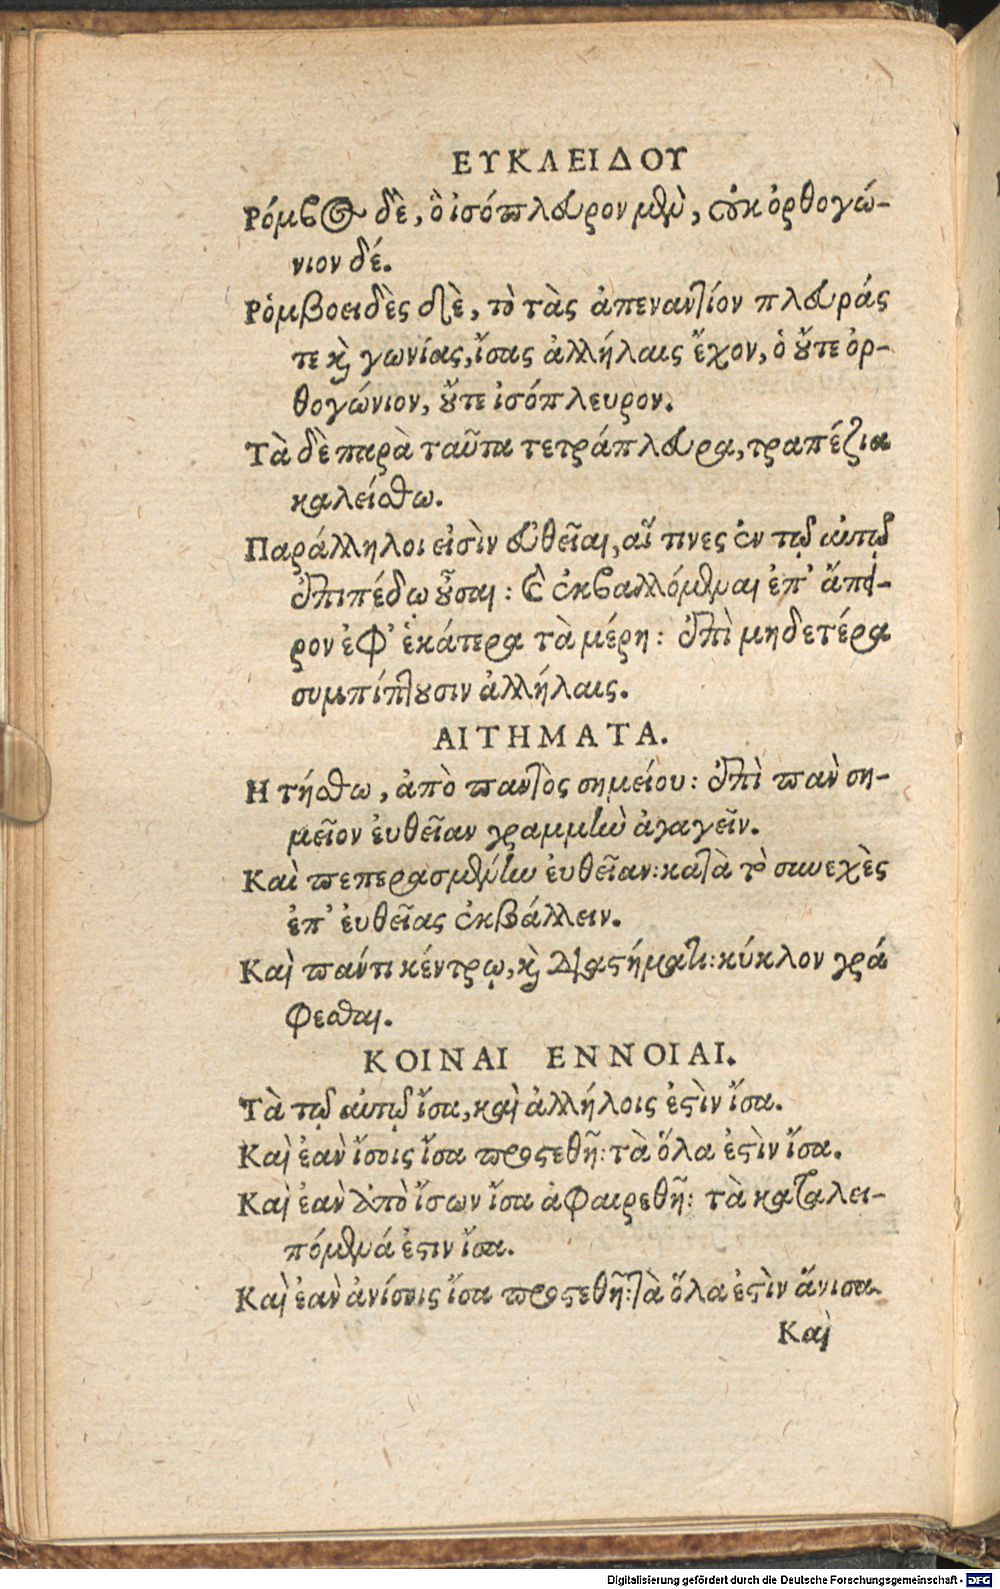 ΕΥΚΛΕΙΔΟΥ
Ρόμβος δὲ, ὃ ἰσόπλευρον μὲν, οὐκ ὀρθογώ-
νιον δέ.
Ρὁμβοειδὲς δὲ, τὸ τὰς ἀπεναντίον πλευράς
τε καὶ γωνίας, ἴσας ἀλλήλαις ἔχον, ὁ οὔτε ὀρ-
θογώνιον, οὔτε ἰσόπλευρον.
Τὰ δὲ παρὰ ταῦτα τετράπλευρα, τραπέζια
καλείσθω.
Παράλληλοι εἰσὶν εὐθεῖαι, αἵ τινες ἐν τῷ αὐτῷ
ἐπιπέδῳ οὖσαι: καὶ ἐκβαλλόμεναι ἐπ' ἄπει-
ρον ἐφ' ἑκάτερα τὰ μέρη: ἐπὶ μηδετέρα
συμπίπτουσιν ἀλλήλαις.
ΑΙΤΗΜΑΤΑ.
Ητήσθω, ἀπὸ παντὸς σημείου: ἐπὶ πᾶν ση-
μεῖον ἐυθεῖαν γραμμὴν ἀγαγεῖν.
Καὶ πεπερασμένην ἐυθεῖαν: κατὰ τὸ συνεχὲς
ἐπ' ἐυθείας ἐκβάλλειν.
Καὶ παντὶ κέντρῳ, καὶ διαστήματι: κύκλον γρά
φεσθαι.
ΚΟΙΝΑΙ ΕΝΝΟΙΑΙ.
Τὰ τῷ αὐτῷ ἴσα, καὶ ἀλλήλοις ἐστὶν ἴσα.
Καὶ ἐὰν ἴσοις ἴσα προστεθῇ: τὰ ὅλα ἐστὶν ἴσα.
Καὶ ἐὰν ἀπὸ ἴσων ἴσα ἀφαιρεθῇ: τὰ καταλει-
πόμενά ἐστιν ἴσα.
Καὶ ἐὰν ἀνίσοις ἴσα προστεθῇ: τὰ ὅλα ἐστὶν ἄνισα.
Καὶ
Digitalisierung gefördert durch die Deutsche Forschungsgemeinschaft - DFG